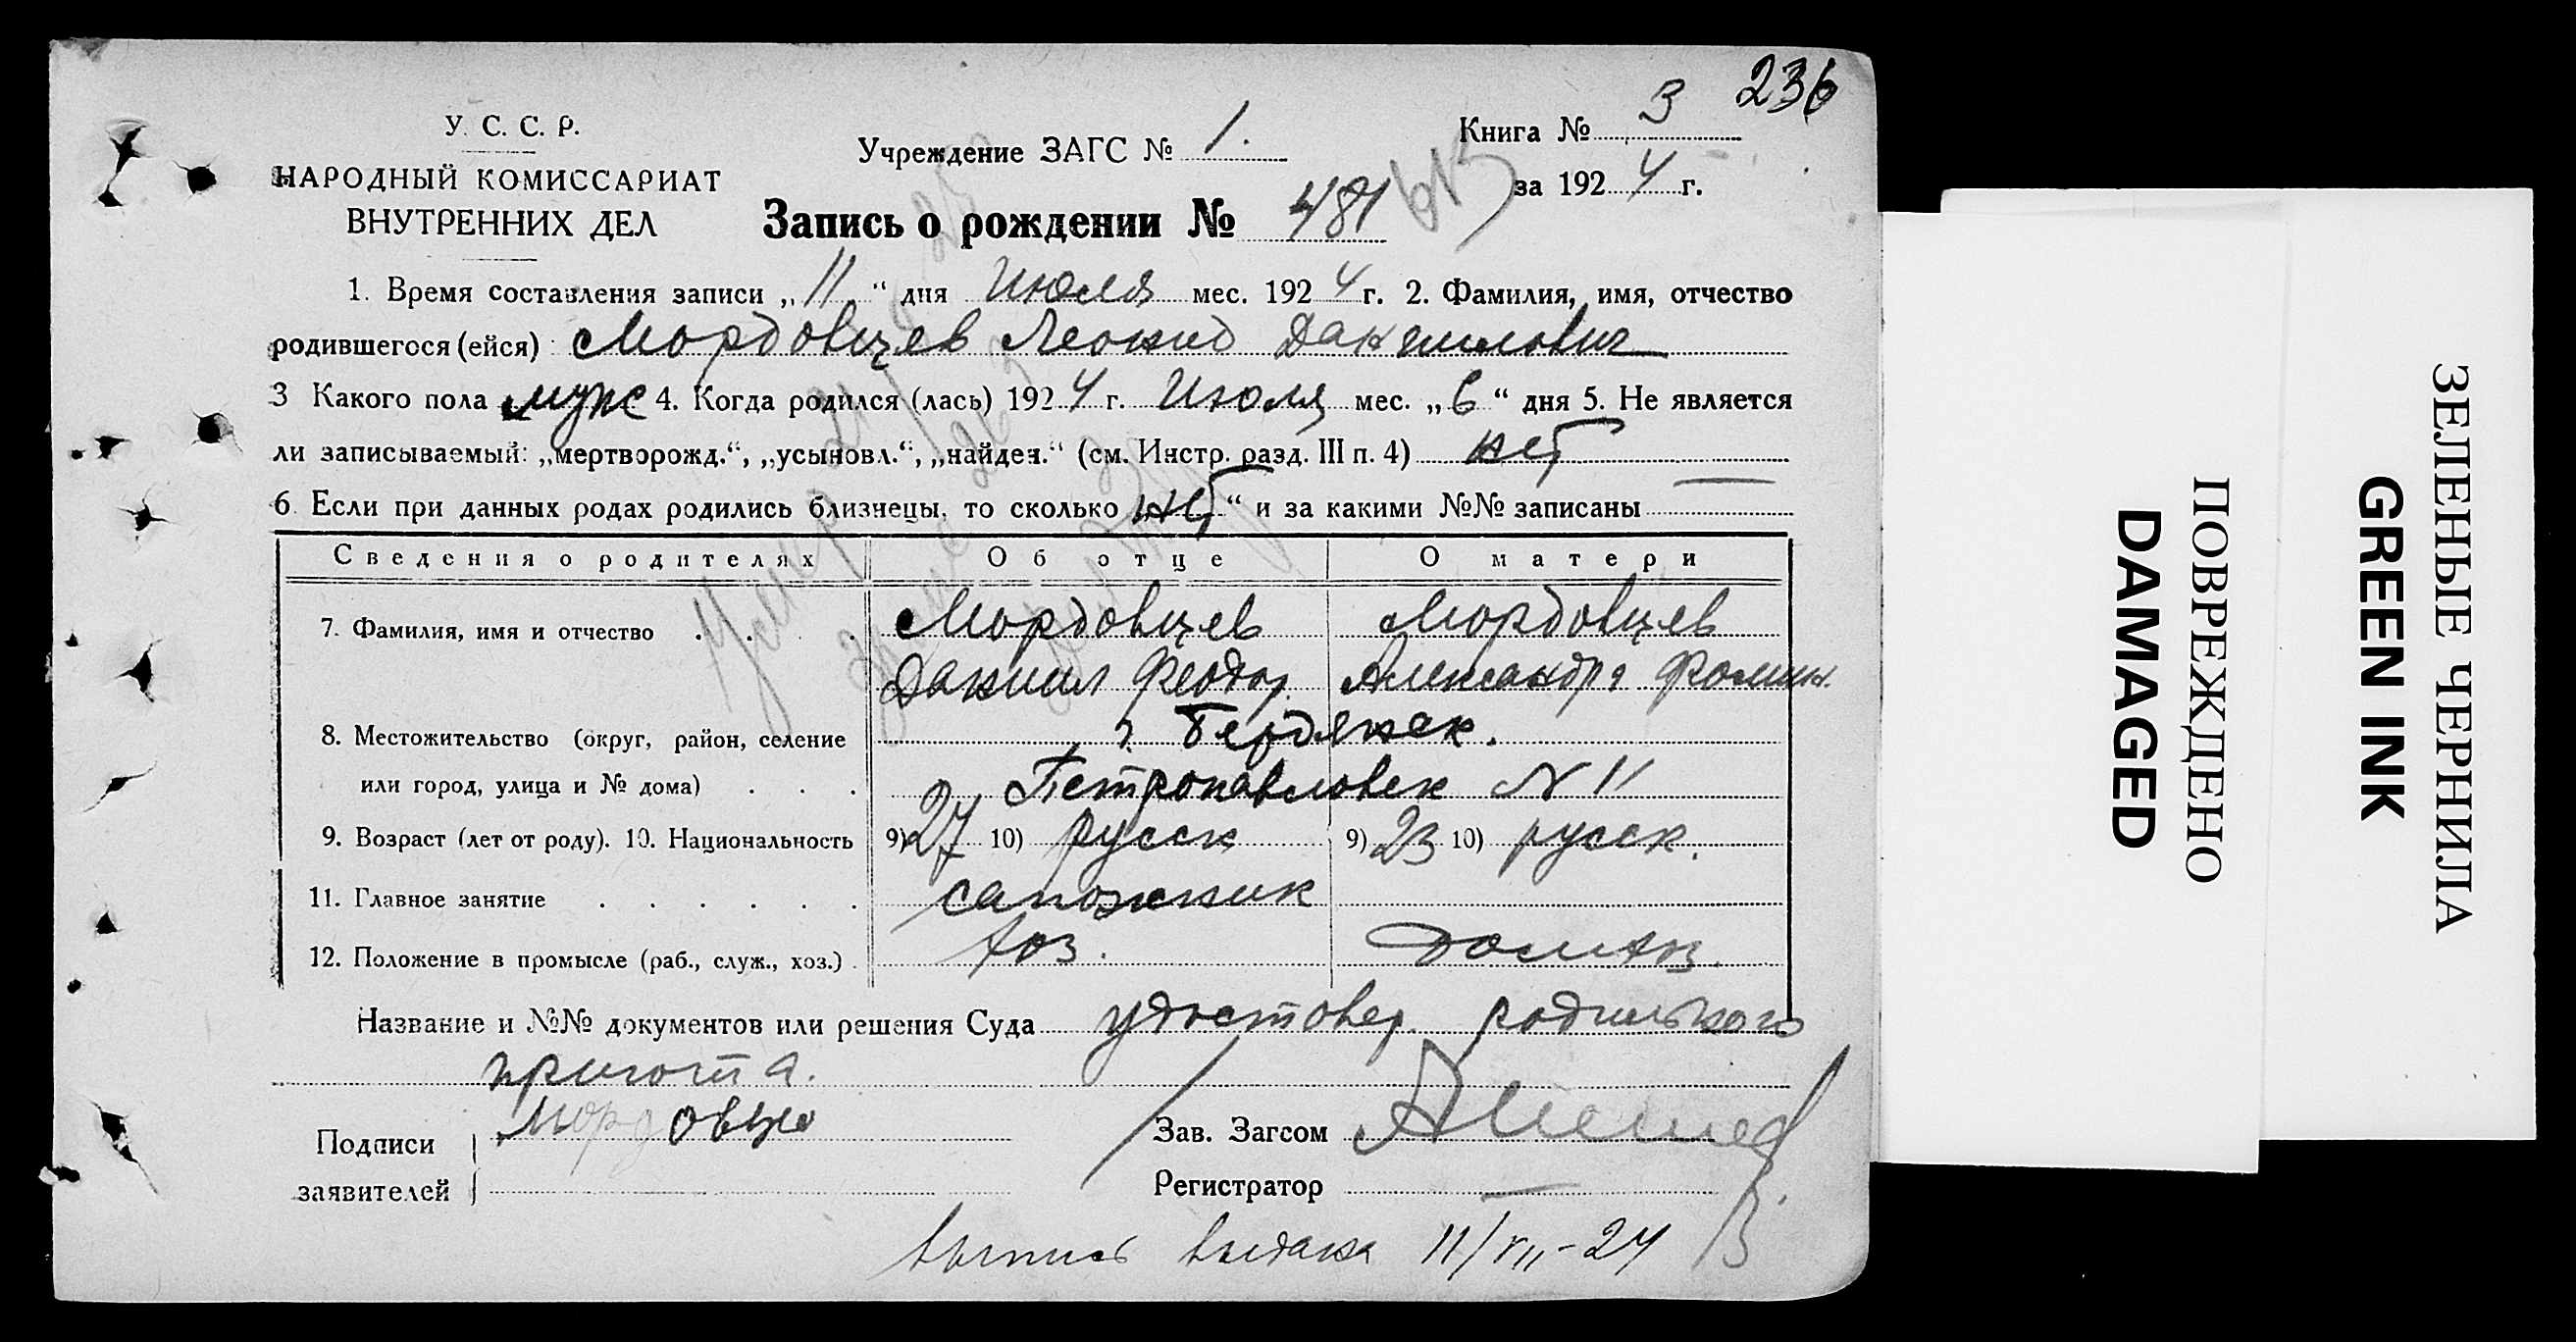 236
У. С. С. Р.
НАРОДНЫЙ КОМИССАРИАТ
ВНУТРЕННИХ ДЕЛ
Учреждение ЗАГС № 1.
Книга № 3
за 1924 г.
Запись о рождении № 481
1. Время составления записи „11“ дня Июля мес. 1924 г. 2. Фамилия, имя, отчество
родившегося (ейся) Мордовцев Леонид Даниилович
3 Какого пола муж 4. Когда родился (лась) 1924 г. Июля мес. „6“ дня 5. Не является
ли записываемый: „мертворожд.“, „усыновл.“, „найден.“ (см. Инстр. разд. III п. 4) нет
6. Если при данных родах родились близнецы, то сколько „нет“ и за какими №№ записаны
Сведения о родителях Об отце О матери
7. Фамилия, имя и отчество Мордовцев Мордовцев
Даниил Феодор. Александра Фомин.
8. Местожительство (округ, район, селение г. Бердянск.
или город, улица и № дома) Петропавловск N 11
9. Возраст (лет от роду). 10. Национальность 9) 27 10) русск 9) 23 10) русск.
11. Главное занятие сапожник
12. Положение в промысле (раб., служ., хоз.) хоз. домхоз.
Название и №№ документов или решения Суда удостовер. родильного
приюта.
Подписи заявителей Мордовцев
Зав. Загсом
Регистратор
выпись выдана 11/VII-24
ПОВРЕЖДЕНО
DAMAGED
ЗЕЛЕНЫЕ ЧЕРНИЛА
GREEN INK